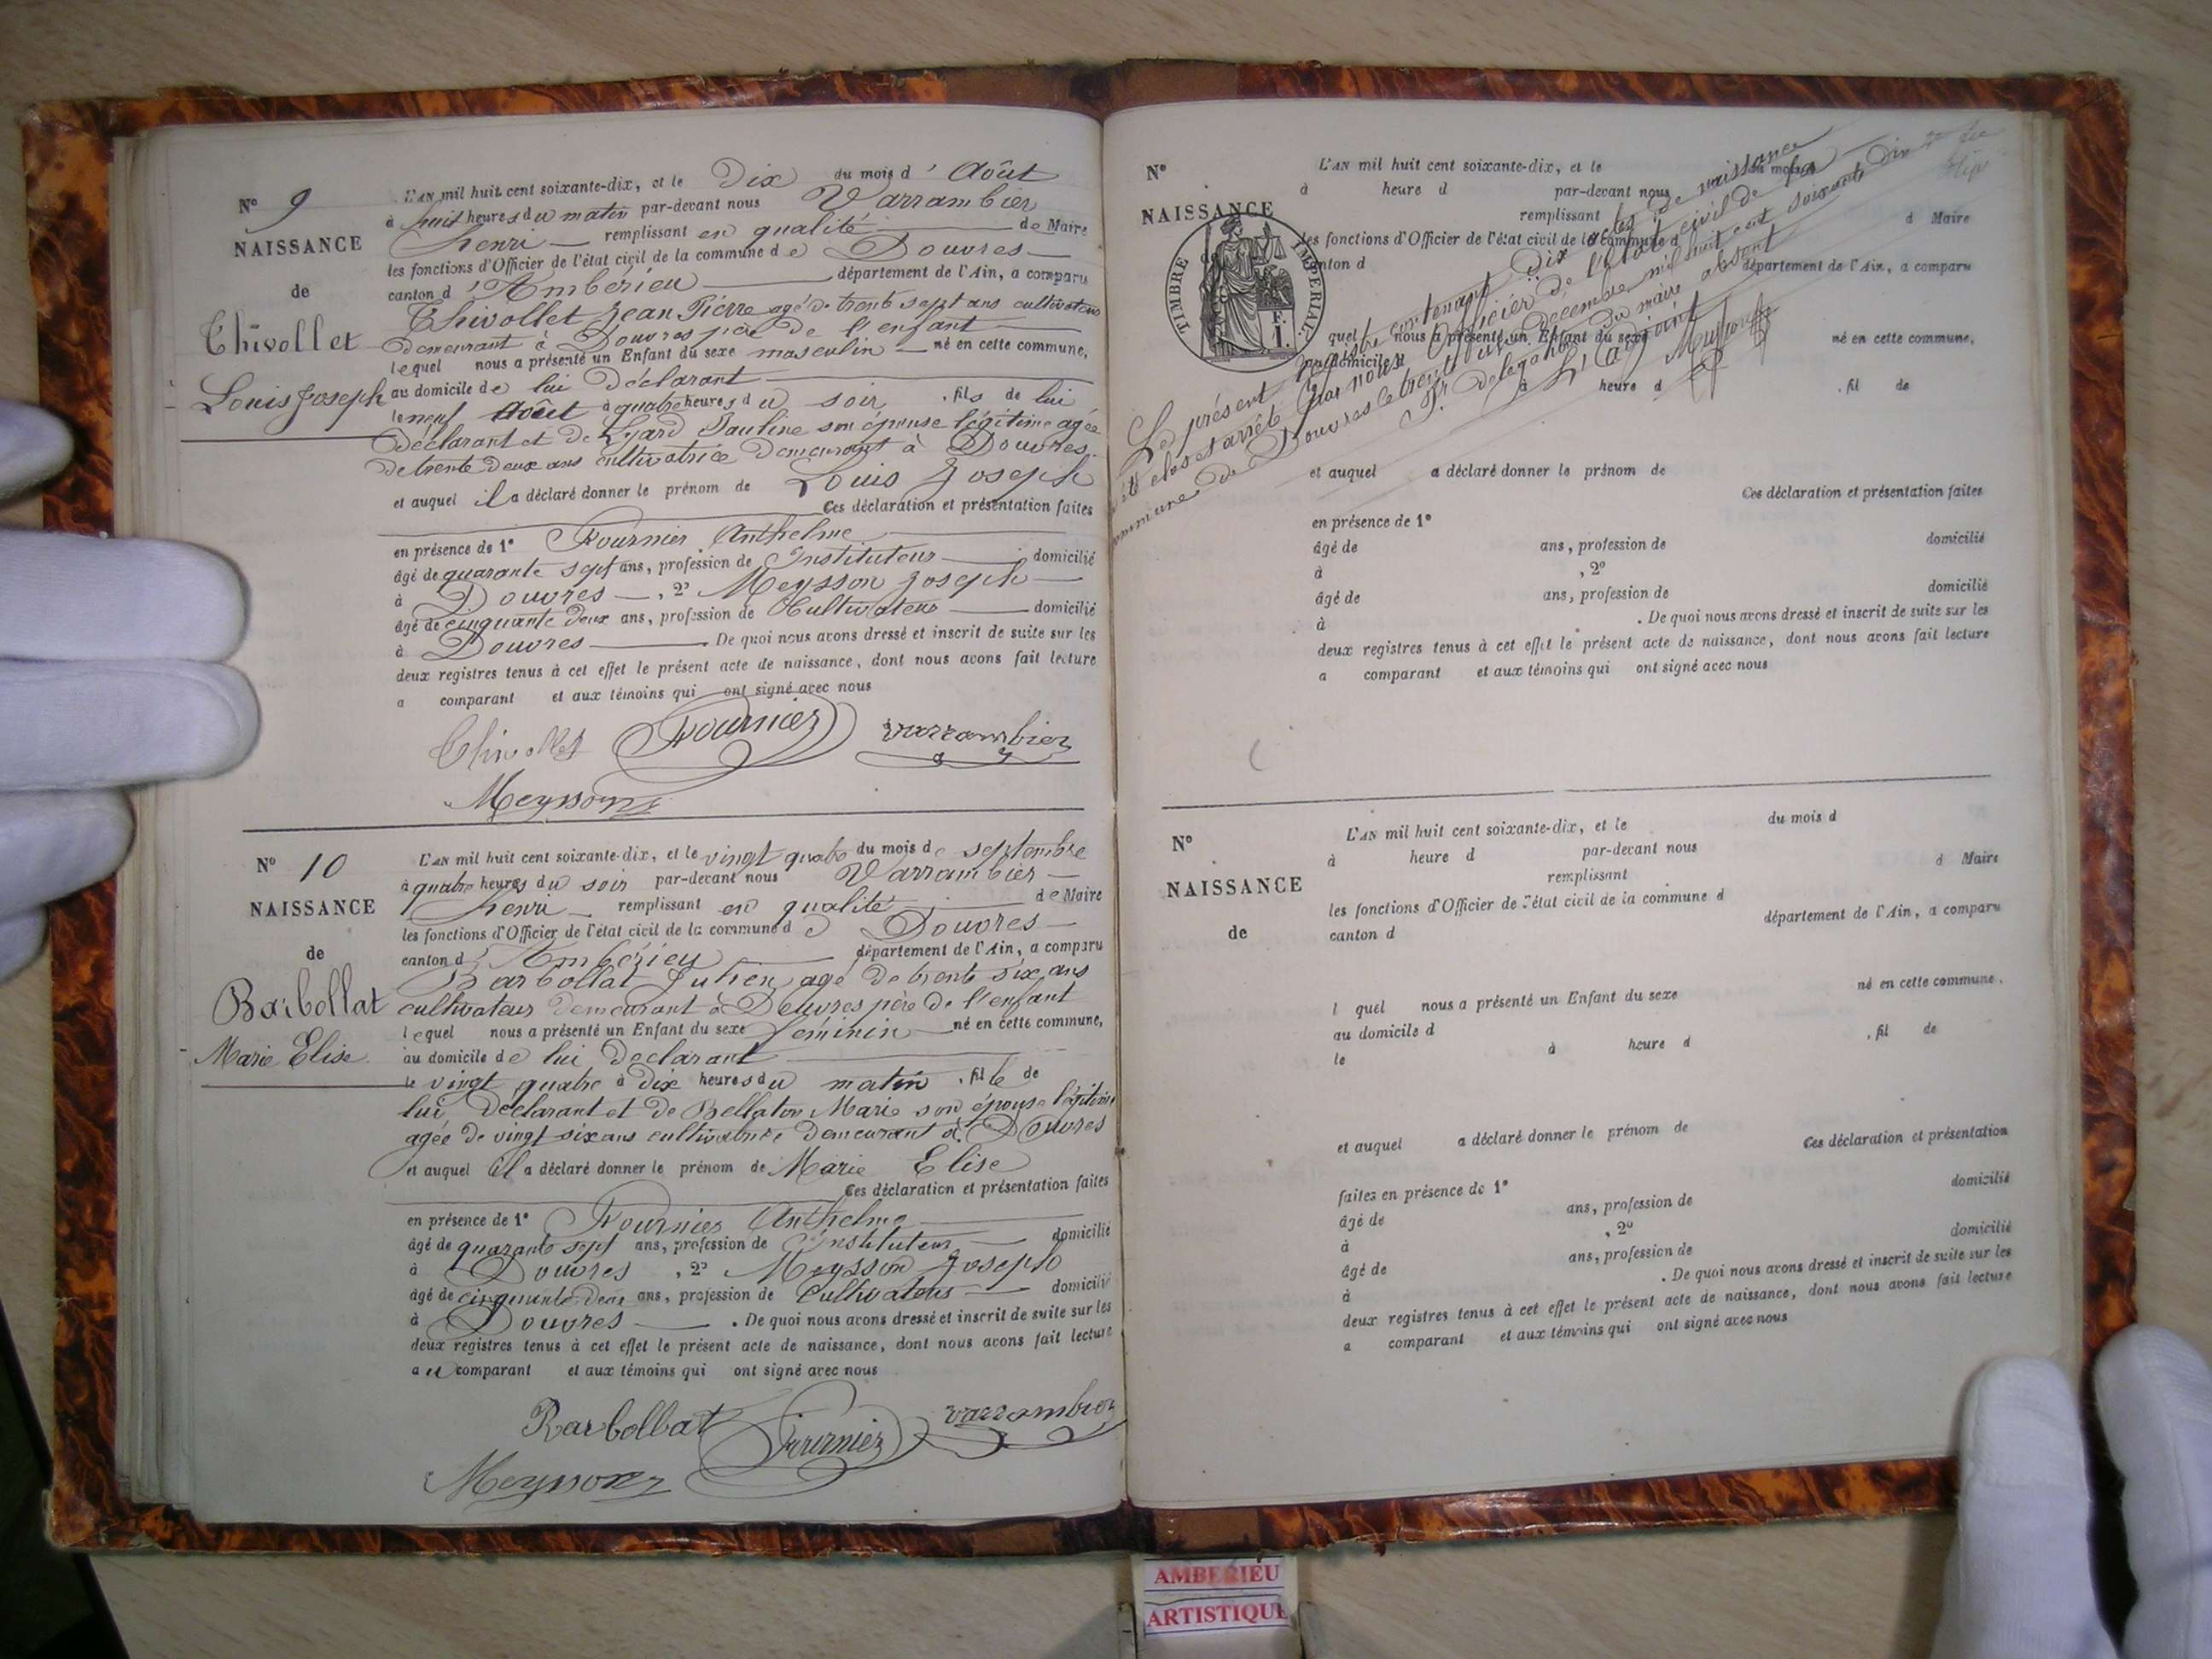 N° 9
NAISSANCE
de
Thivollet
Louis Joseph
L'AN mil huit cent soixante-dix, et le Dix du mois d'Août
à huit heures du matin par-devant nous Varrambier
Henri remplissant en qualité de Maire
les fonctions d'Officier de l'état civil de la commune de Douvres
canton d'Ambérieu département de l'Ain, a comparu
Thivollet Jean Pierre agé de trente sept ans cultivateur
demeurant à Douvres père de l'enfant
lequel nous a présenté un Enfant du sexe masculin né en cette commune,
au domicile de lui Déclarant
le neuf Août à quatre heures du soir, fils de lui
déclarant et de Lyard Pauline son épouse légitime agée
de trente deux ans cultivatrice demeurant à Douvres
et auquel il a déclaré donner le prénom de Louis Joseph
Ces déclaration et présentation faites
en présence de 1° Fournier Anthelme
âgé de quarante sept ans, profession de Instituteur domicilié
à Douvres, 2° Meysson Joseph
âgé de cinquante deux ans, profession de Cultivateur domicilié
à Douvres. De quoi nous avons dressé et inscrit de suite sur les
deux registres tenus à cet effet le présent acte de naissance, dont nous avons fait lecture
a comparant et aux témoins qui ont signé avec nous
Thivollet Fournier varrambier
Meysson
N° 10
NAISSANCE
de
Barbollat
Marie Elise
L'AN mil huit cent soixante-dix, et le vingt quatre du mois de septembre
à quatre heures du soir par-devant nous Varrambier
Henri remplissant en qualité de Maire
les fonctions d'Officier de l'état civil de la commune de Douvres
canton d'Ambérieu département de l'Ain, a comparu
Barbollat Julien agé de trente six ans
cultivateur demeurant à Douvres père de l'enfant
lequel nous a présenté un Enfant du sexe féminin né en cette commune,
au domicile de lui déclarant
le vingt quatre à dix heures du matin, fille de
lui déclarant et de Bellaton Marie son épouse légitime
agée de vingt six ans cultivatrice demeurant à Douvres
et auquel il a déclaré donner le prénom de Marie Elise
Ces déclaration et présentation faites
en présence de 1° Fournier Anthelme
âgé de quarante sept ans, profession de Instituteur domicilié
à Douvres, 2° Meysson Joseph
âgé de cinquante deux ans, profession de Cultivateur domicilié
à Douvres. De quoi nous avons dressé et inscrit de suite sur les
deux registres tenus à cet effet le présent acte de naissance, dont nous avons fait lecture
au comparant et aux témoins qui ont signé avec nous
Barbollat Fournier varrambier
Meysson
N°
NAISSANCE
TIMBRE IMPERIAL.
F. 1.
L'AN mil huit cent soixante-dix, et le du mois
à heure d par-devant nous
remplissant d Maire
les fonctions d'Officier de l'état civil de la commune d
canton d département de l'Ain, a comparu
quel nous a présenté un Enfant du sexe né en cette commune,
au domicile d
à heure d , fil de
Le présent registre contenant dix actes de naissance
été clos et arrêté par nous Officier de l'état civil de la
commune de Douvres le trente un décembre mil huit cent soixante dix
Pr délégation du maire absent
L'adjoint
Meysson
et auquel a déclaré donner le prénom de
Ces déclaration et présentation faites
en présence de 1°
âgé de ans, profession de domicilié
à , 2°
âgé de ans, profession de domicilié
à . De quoi nous avons dressé et inscrit de suite sur les
deux registres tenus à cet effet le présent acte de naissance, dont nous avons fait lecture
a comparant et aux témoins qui ont signé avec nous
N°
NAISSANCE
de
L'AN mil huit cent soixante-dix, et le du mois d
à heure d par-devant nous
remplissant d Maire
les fonctions d'Officier de l'état civil de la commune d
canton d département de l'Ain, a comparu
l quel nous a présenté un Enfant du sexe né en cette commune,
au domicile d
le à heure d , fil de
et auquel a déclaré donner le prénom de
Ces déclaration et présentation
faites en présence de 1°
âgé de ans, profession de domicilié
à , 2°
âgé de ans, profession de domicilié
à . De quoi nous avons dressé et inscrit de suite sur les
deux registres tenus à cet effet le présent acte de naissance, dont nous avons fait lecture
a comparant et aux témoins qui ont signé avec nous
AMBERIEU
ARTISTIQUE